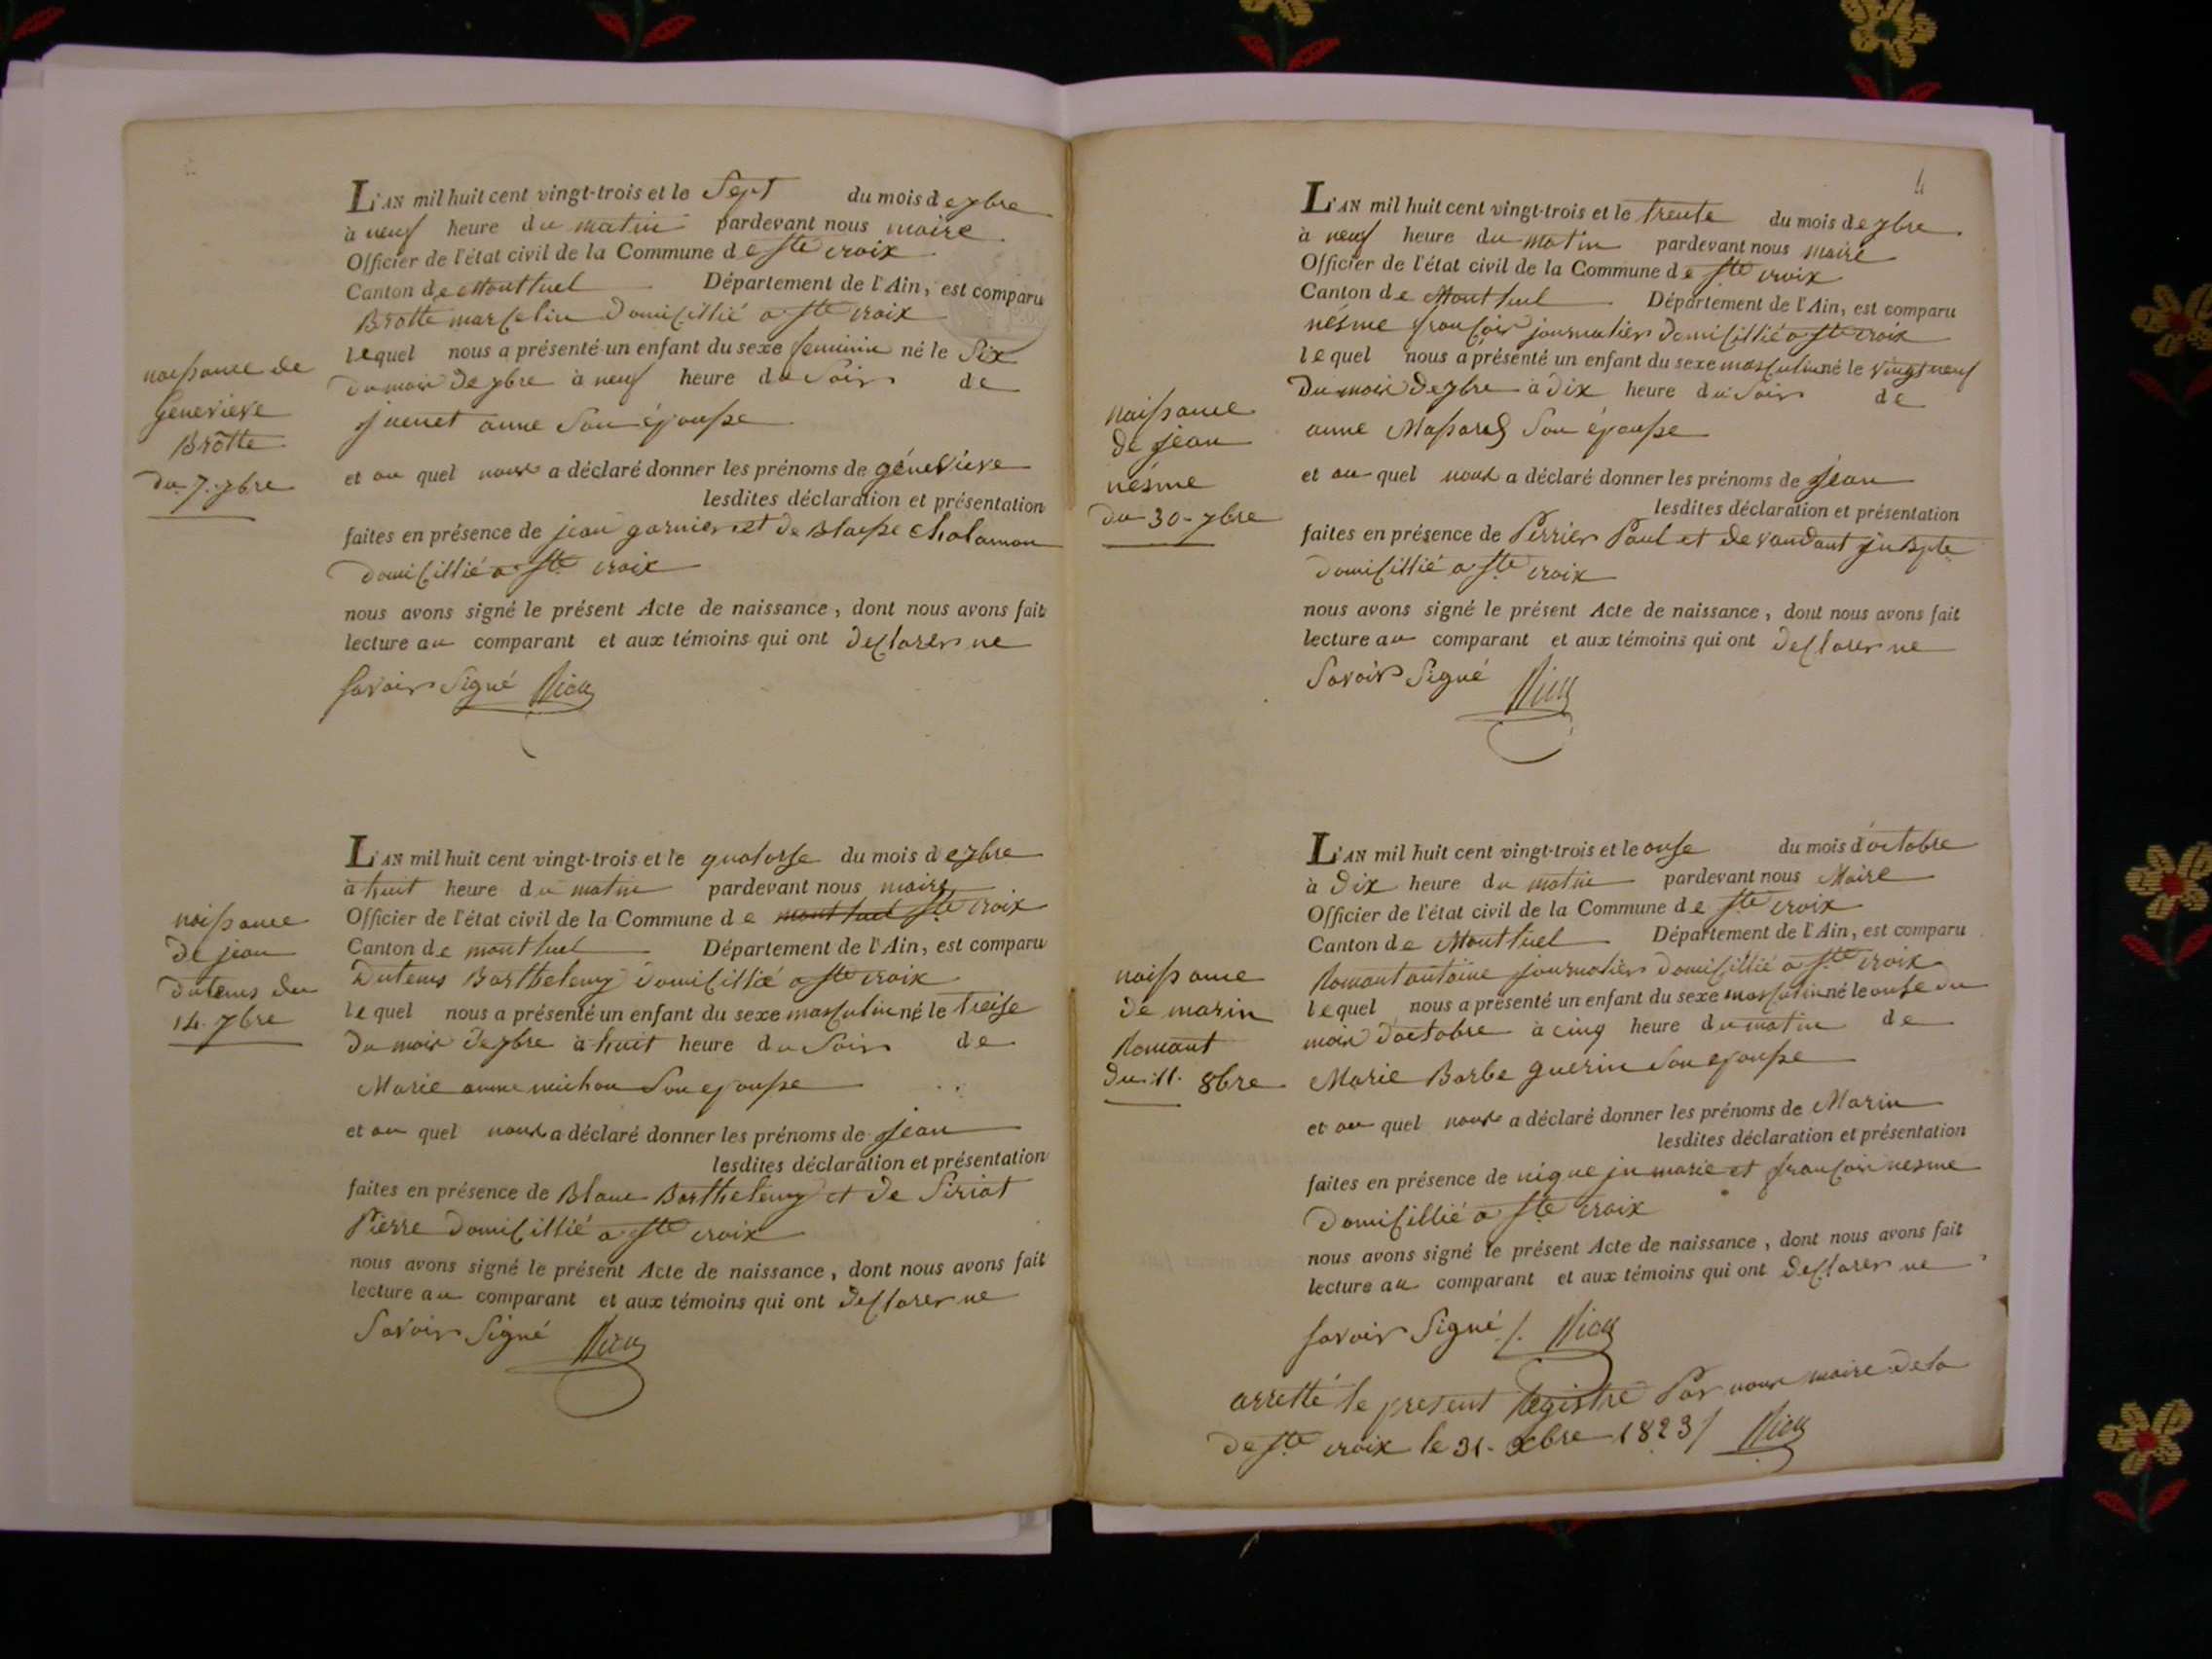 naissance de
Genevieve
Brotte
du 7. 7bre
L'AN mil huit cent vingt-trois et le Sept du mois de 7bre
à neuf heure du matin pardevant nous maire
Officier de l'état civil de la Commune de Ste croix
Canton de Montluel Département de l'Ain, est comparu
Brotte marcelin domicillié a Ste croix
lequel nous a présenté un enfant du sexe feminin né le Six
du mois de 7bre à neuf heure du Soir de
anne Son épousse
et au quel nous a déclaré donner les prénoms de génevieve
lesdites déclaration et présentation
faites en présence de jean garnier et de Blaisse Cholamon
domicillié a Ste croix
nous avons signé le présent Acte de naissance, dont nous avons fait
lecture au comparant et aux témoins qui ont declarer ne
Savoir Signé
naissance
de jean
dutems du
14. 7bre
L'AN mil huit cent vingt-trois et le quatorse du mois de 7bre
à huit heure du matin pardevant nous maire
Officier de l'état civil de la Commune de montluel Ste croix
Canton de montluel Département de l'Ain, est comparu
Dutems Barthelemy domicillié a Ste croix
lequel nous a présenté un enfant du sexe masculin né le treise
du mois de 7bre à huit heure du Soir de
Marie anne michon Son epousse
et au quel nous a déclaré donner les prénoms de jean
lesdites déclaration et présentation
faites en présence de Blanc Barthelemy et de Siriat
Pierre domicillié a Ste croix
nous avons signé le présent Acte de naissance, dont nous avons fait
lecture au comparant et aux témoins qui ont declarer ne
Savoir Signé
4
naissance
de jean
nésme
du 30. 7bre
L'AN mil huit cent vingt-trois et le trente du mois de 7bre
à neuf heure du matin pardevant nous maire
Officier de l'état civil de la Commune de Ste croix
Canton de Montluel Département de l'Ain, est comparu
nésme françois journalier domicillié a Ste croix
lequel nous a présenté un enfant du sexe masculin né le vingt neuf
du mois de 7bre à dix heure du Soir de
anne Massard Son épousse
et au quel nous a déclaré donner les prénoms de jean
lesdites déclaration et présentation
faites en présence de Perrier Paul et de vandant jn Bpte
domicillié a Ste croix
nous avons signé le présent Acte de naissance, dont nous avons fait
lecture au comparant et aux témoins qui ont declarer ne
Savoir Signé
naissance
de marin
Romant
du 11. 8bre
L'AN mil huit cent vingt-trois et le onse du mois d'octobre
à dix heure du matin pardevant nous Maire
Officier de l'état civil de la Commune de Ste croix
Canton de Montluel Département de l'Ain, est comparu
Romant antoine journalier domicillié a Ste croix
lequel nous a présenté un enfant du sexe masculin né le onse du
mois d'octobre à cinq heure du matin de
Marie Barbe guerin Son epousse
et au quel nous a déclaré donner les prénoms de Marin
lesdites déclaration et présentation
faites en présence de nigue jn marie et françois nesme
domicillié a Ste croix
nous avons signé le présent Acte de naissance, dont nous avons fait
lecture au comparant et aux témoins qui ont declarer ne
Savoir Signé /.
arretté le present Registre Par nous maire de la
de Ste croix le 31. Xbre 1823 /